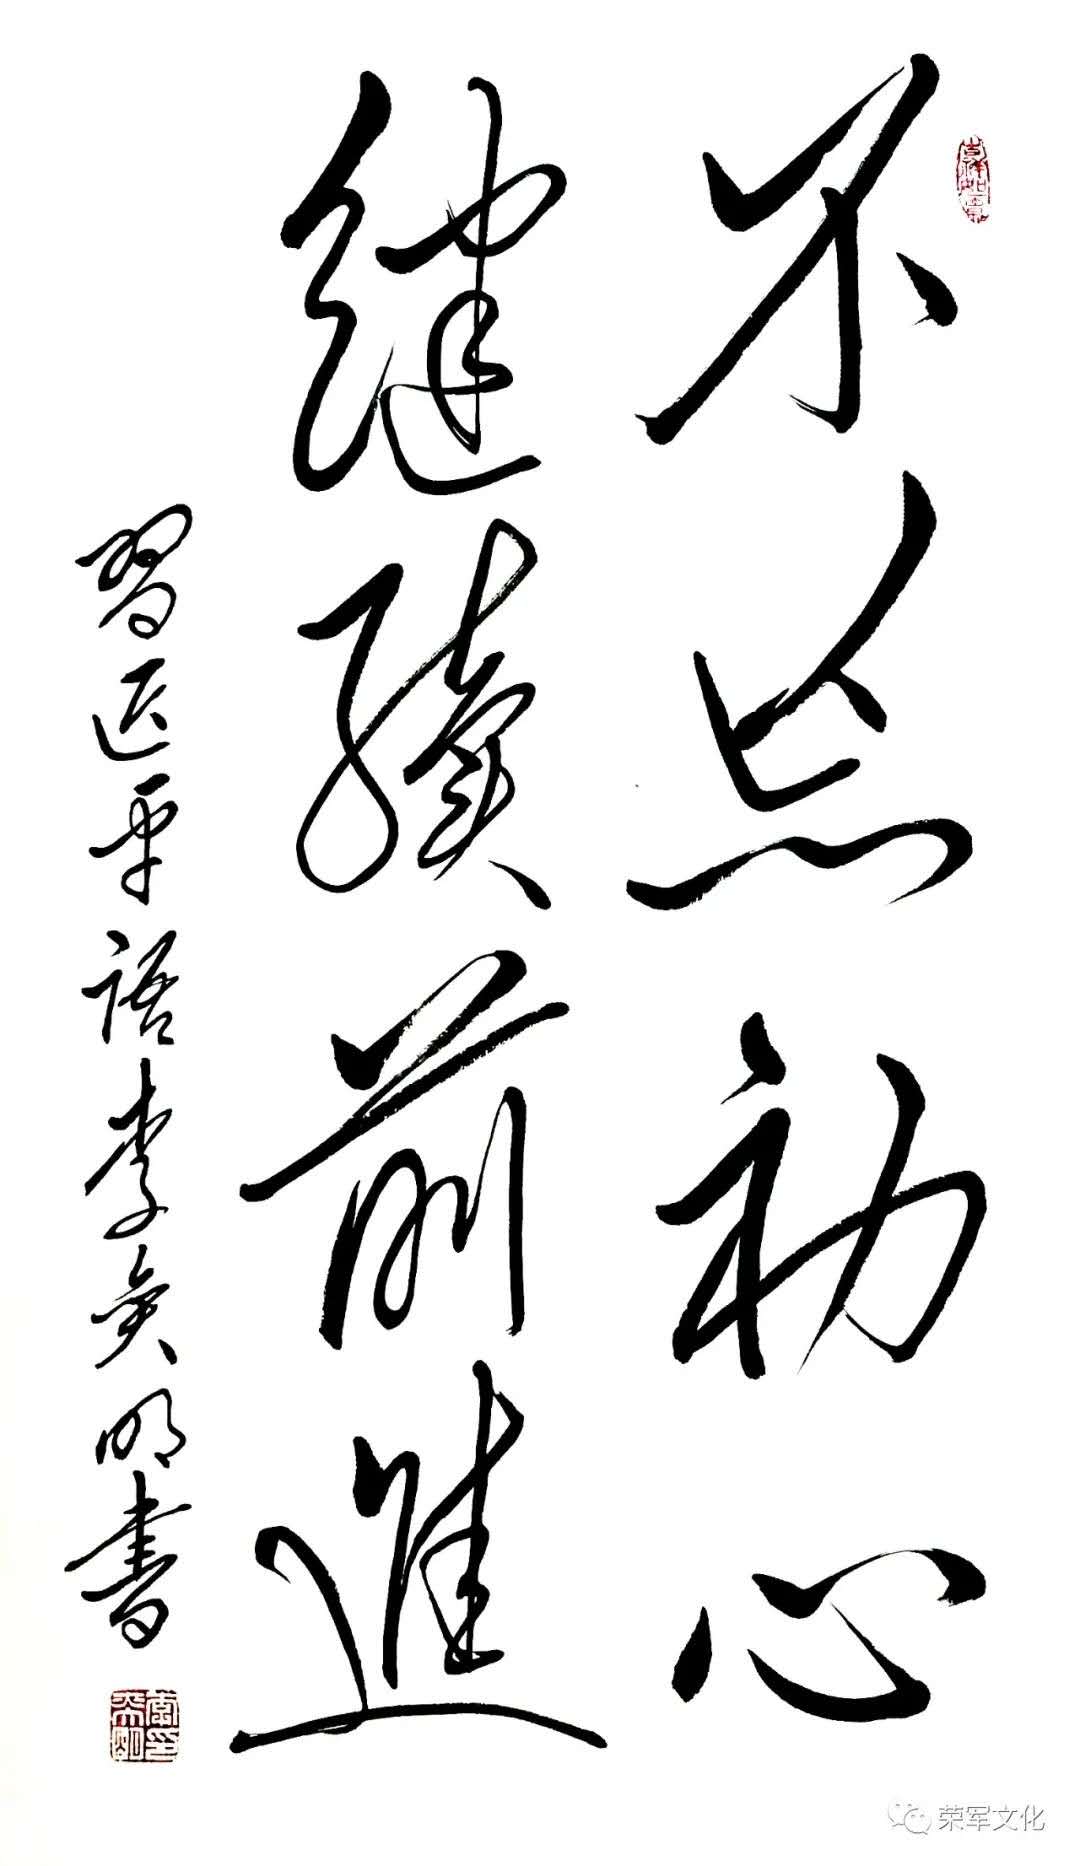 不忘初心
继续前進
習近平语李奕明书
荣军文化